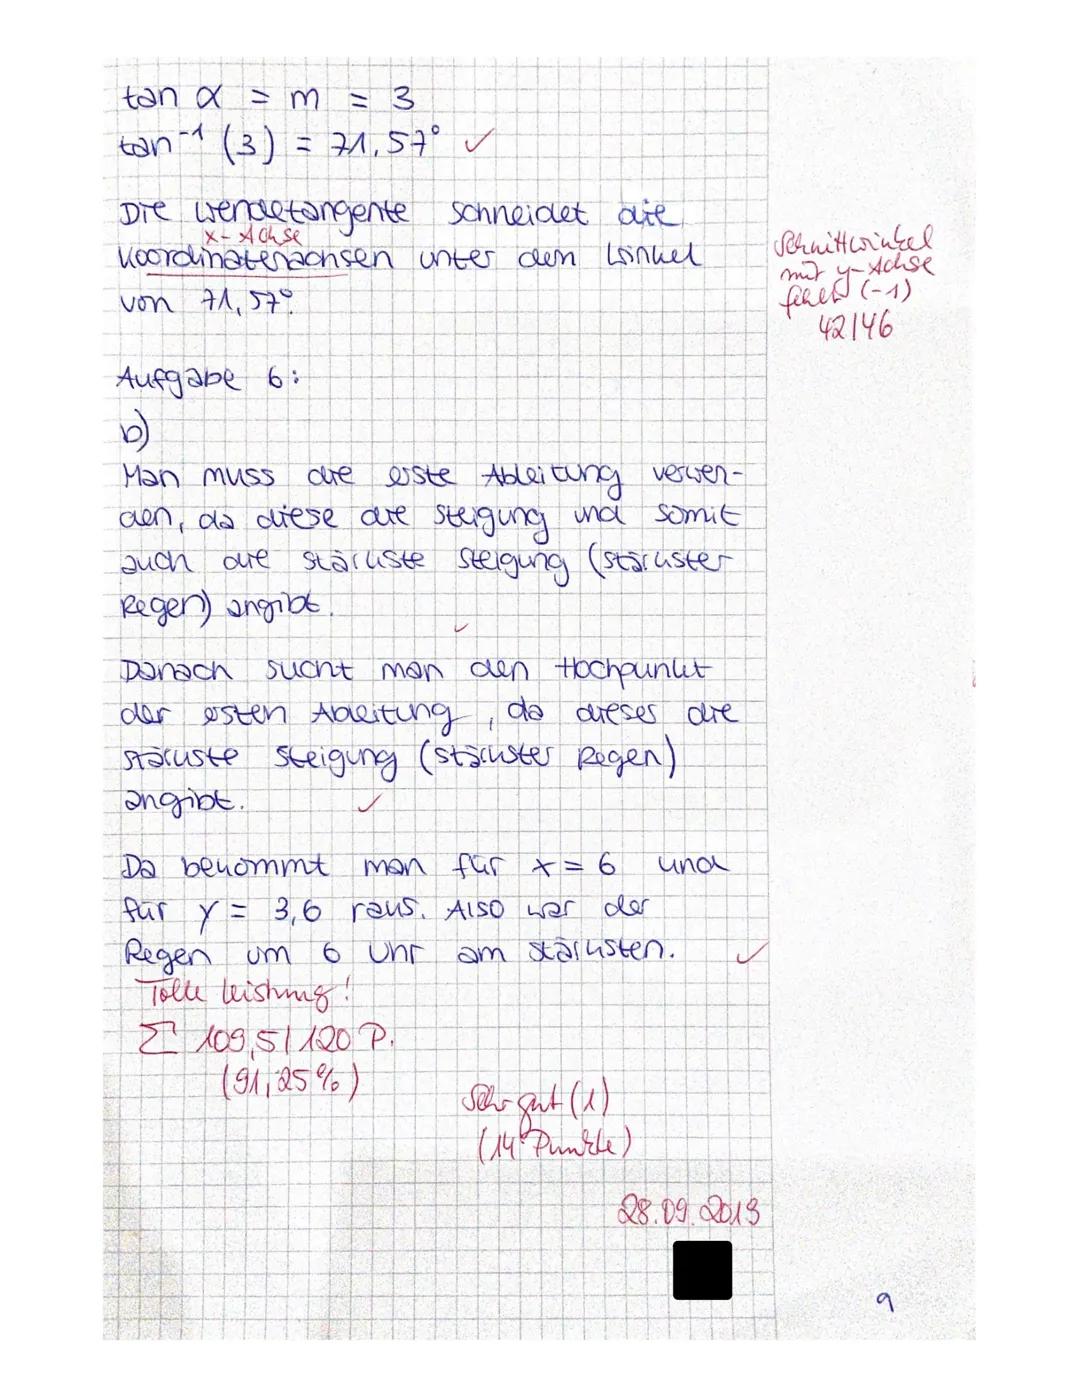 tan α = m = 3
tan⁻¹ (3) = 71,57° ✓
Die Wendetangente schneidet die
x-Achse
Koordinatenachsen unter dem Winkel
von 71,57°.
Schnittwinkel
mit y-Achse
fehlt (-1)
42/46
Aufgabe 6:
b)
Man muss die erste Ableitung verwen-
den, da diese die Steigung und somit
auch die stärkste Steigung (stärkster
Regen) angibt. ✓
Danach sucht man den Hochpunkt
der ersten Ableitung, da dieses die
stärkste Steigung (stärkster Regen)
angibt. ✓
Da bekommt man für x = 6 und
für y = 3,6 raus. Also war der
Regen um 6 Uhr am stärksten. ✓
Tolle Leistung!
Σ 109,5/120 P.
(91,25%)
Sehr gut (1)
(14 Punkte)
28.09.2019
9